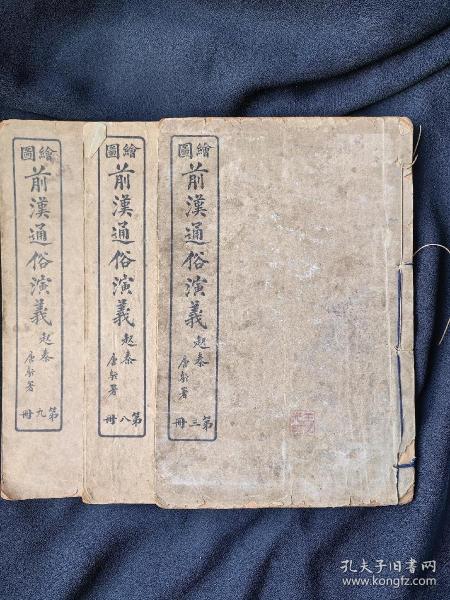 繪圖
前漢通俗演義
起秦
唐駝署
第三冊
繪圖
前漢通俗演義
起秦
唐駝署
第八冊
繪圖
前漢通俗演義
起秦
唐駝署
第九冊
孔夫子旧书网
www.kongfz.com